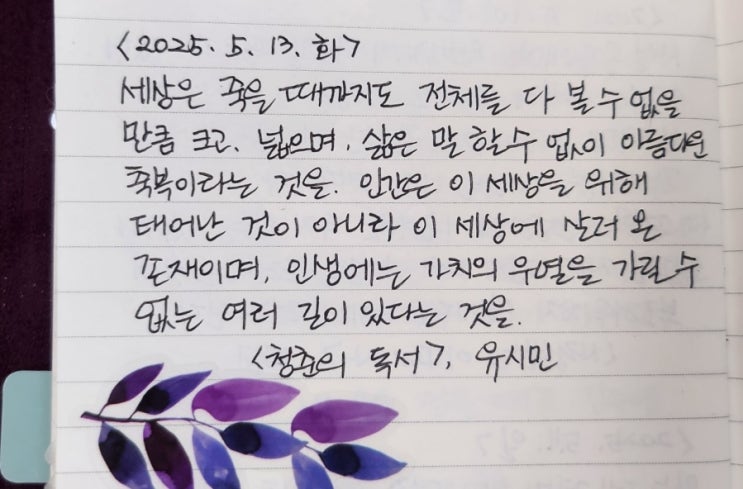 <2025. 5. 13. 화>
세상은 죽을 때까지도 전체를 다 볼 수 없을
만큼 크고, 넓으며, 삶은 말 할 수 없이 아름다운
축복이라는 것을. 인간은 이 세상을 위해
태어난 것이 아니라 이 세상에 살러 온
존재이며, 인생에는 가치의 우열을 가릴 수
없는 여러 길이 있다는 것을.
<청춘의 독서>, 유시민